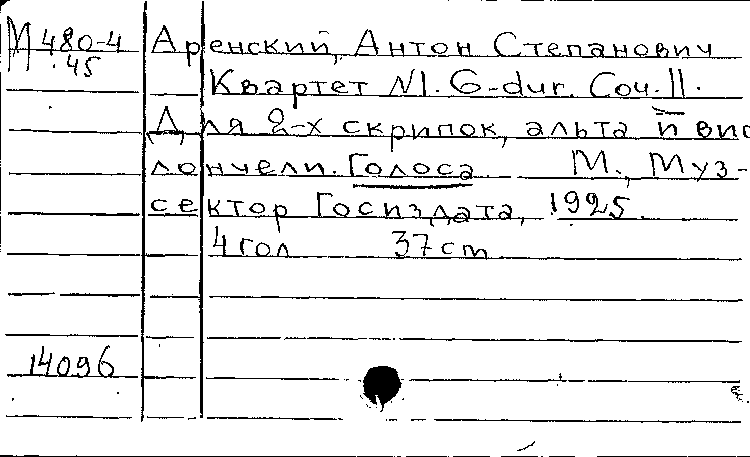 М 480-4 Аренский, Антон Степанович
45
Квартет N1. G-dur. Соч. 11.
Для 2-х скрипок, альта и вио
лончели. Голоса М., Муз-
сектор Госиздата, 1925.
4 гол 37 cm
14096